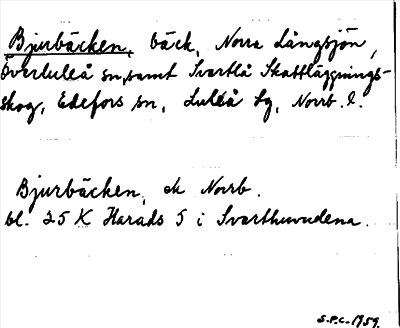 Bjurbäcken, bäck, Norra Långsjön,
Överluleå sn, samt Svartlå Skattläggnings-
skog, Edefors sn, Luleå tg, Norrb. l.
Bjurbäcken, ek Norrb.
bl. 25 K Harads 5 i Svarthuvudena.
S.P.C. 1959.